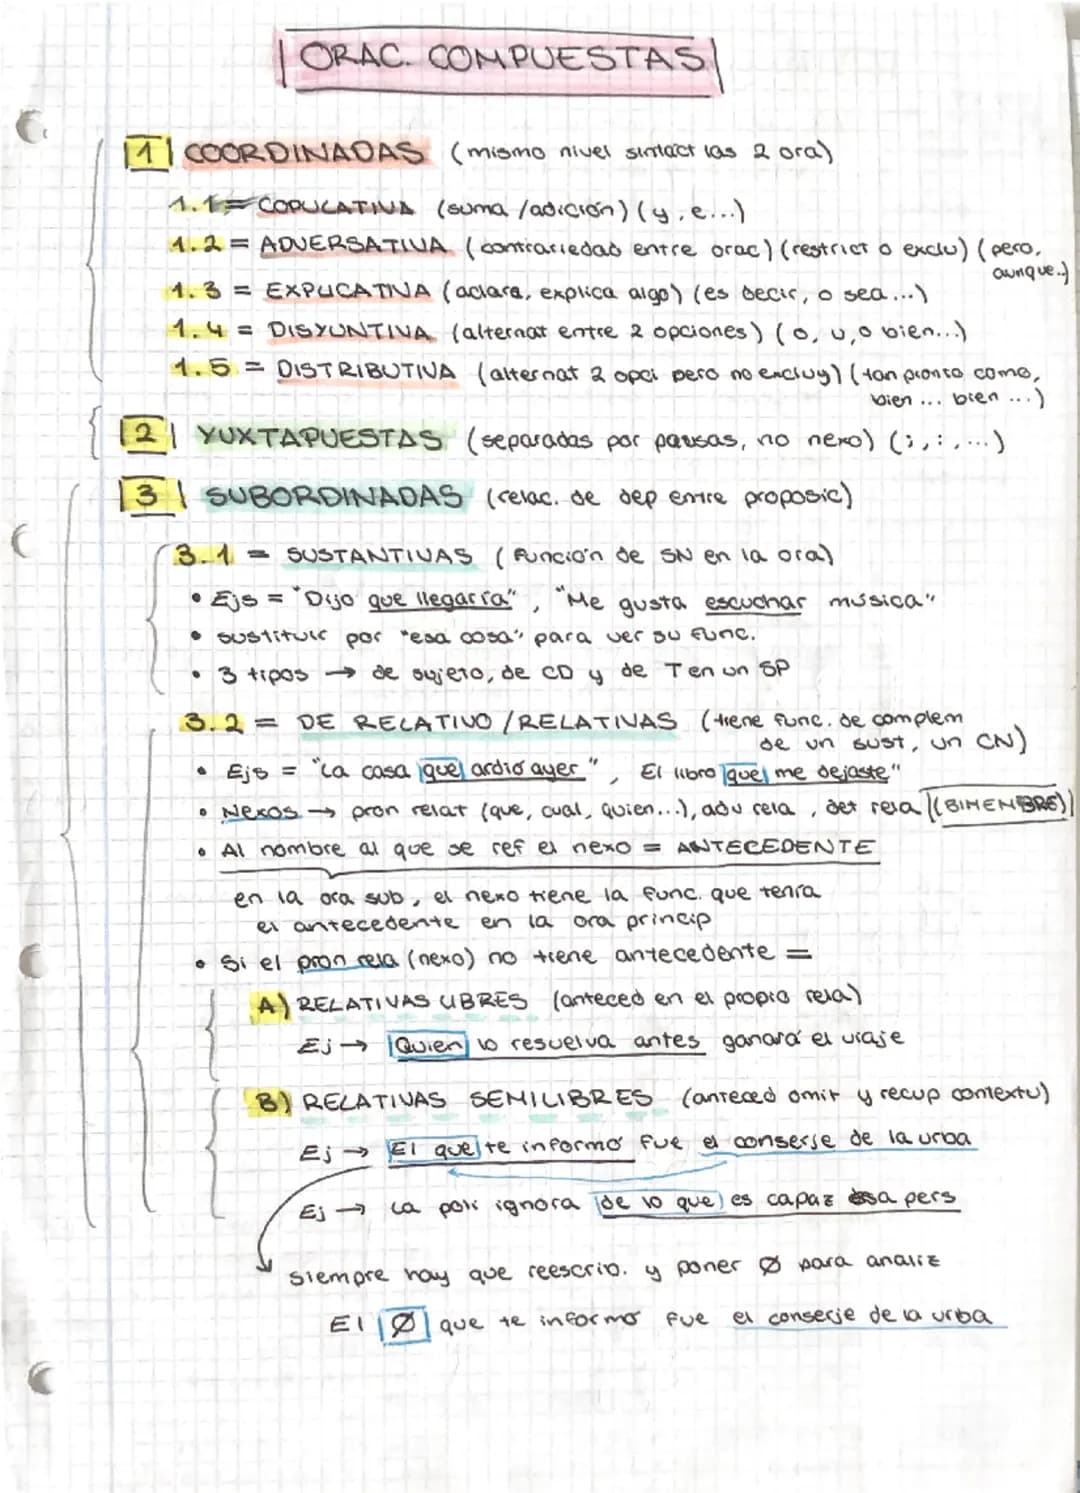 ORAC. COMPUESTAS
1 COORDINADAS (mismo nivel sintact las 2 ora)
1.1 = COPULATIVA (suma/adición) (y, e...)
1.2 = ADVERSATIVA (contrariedad entre orac) (restrict o exclu) (pero,
aunque..)
1.3 = EXPLICATIVA (aclara, explica algo) (es decir, o sea...)
1.4 = DISYUNTIVA (alternat entre 2 opciones) (o, u, o bien...)
1.5 = DISTRIBUTIVA (alternat 2 opci pero no excluy) (tan pronto como,
bien ... bien ...)
2 YUXTAPUESTAS (separadas por pausas, no nexo) (; , : , ...)
3 SUBORDINADAS (relac. de dep entre proposic)
3.1 = SUSTANTIVAS (función de SN en la ora)
• Ejs = "Dijo que llegaría", "Me gusta escuchar música"
• sustituir por "esa cosa" para ver su func.
• 3 tipos → de sujeto, de CD y de T en un SP
3.2 = DE RELATIVO/RELATIVAS (tiene func. de complem
de un sust, un CN)
• Ejs = "La casa que ardió ayer", El libro que me dejaste"
• Nexos → pron relat (que, cual, quien...), adv rela, det rela (BIMEMBRE)
• Al nombre al que se ref el nexo = ANTECEDENTE
en la ora sub, el nexo tiene la func. que tenía
el antecedente en la ora princip
• Si el pron rela (nexo) no tiene antecedente =
A) RELATIVAS LIBRES (anteced en el propio rela)
Ej → Quien lo resuelva antes ganará el viaje
B) RELATIVAS SEMILIBRES (anteced omit y recup contextu)
Ej → El que te informó fue el conserje de la urba
Ej → La poli ignora de lo que es capaz esa pers
siempre hay que reescrib. y poner Ø para analiz
El Ø que te informó fue el conserje de la urba